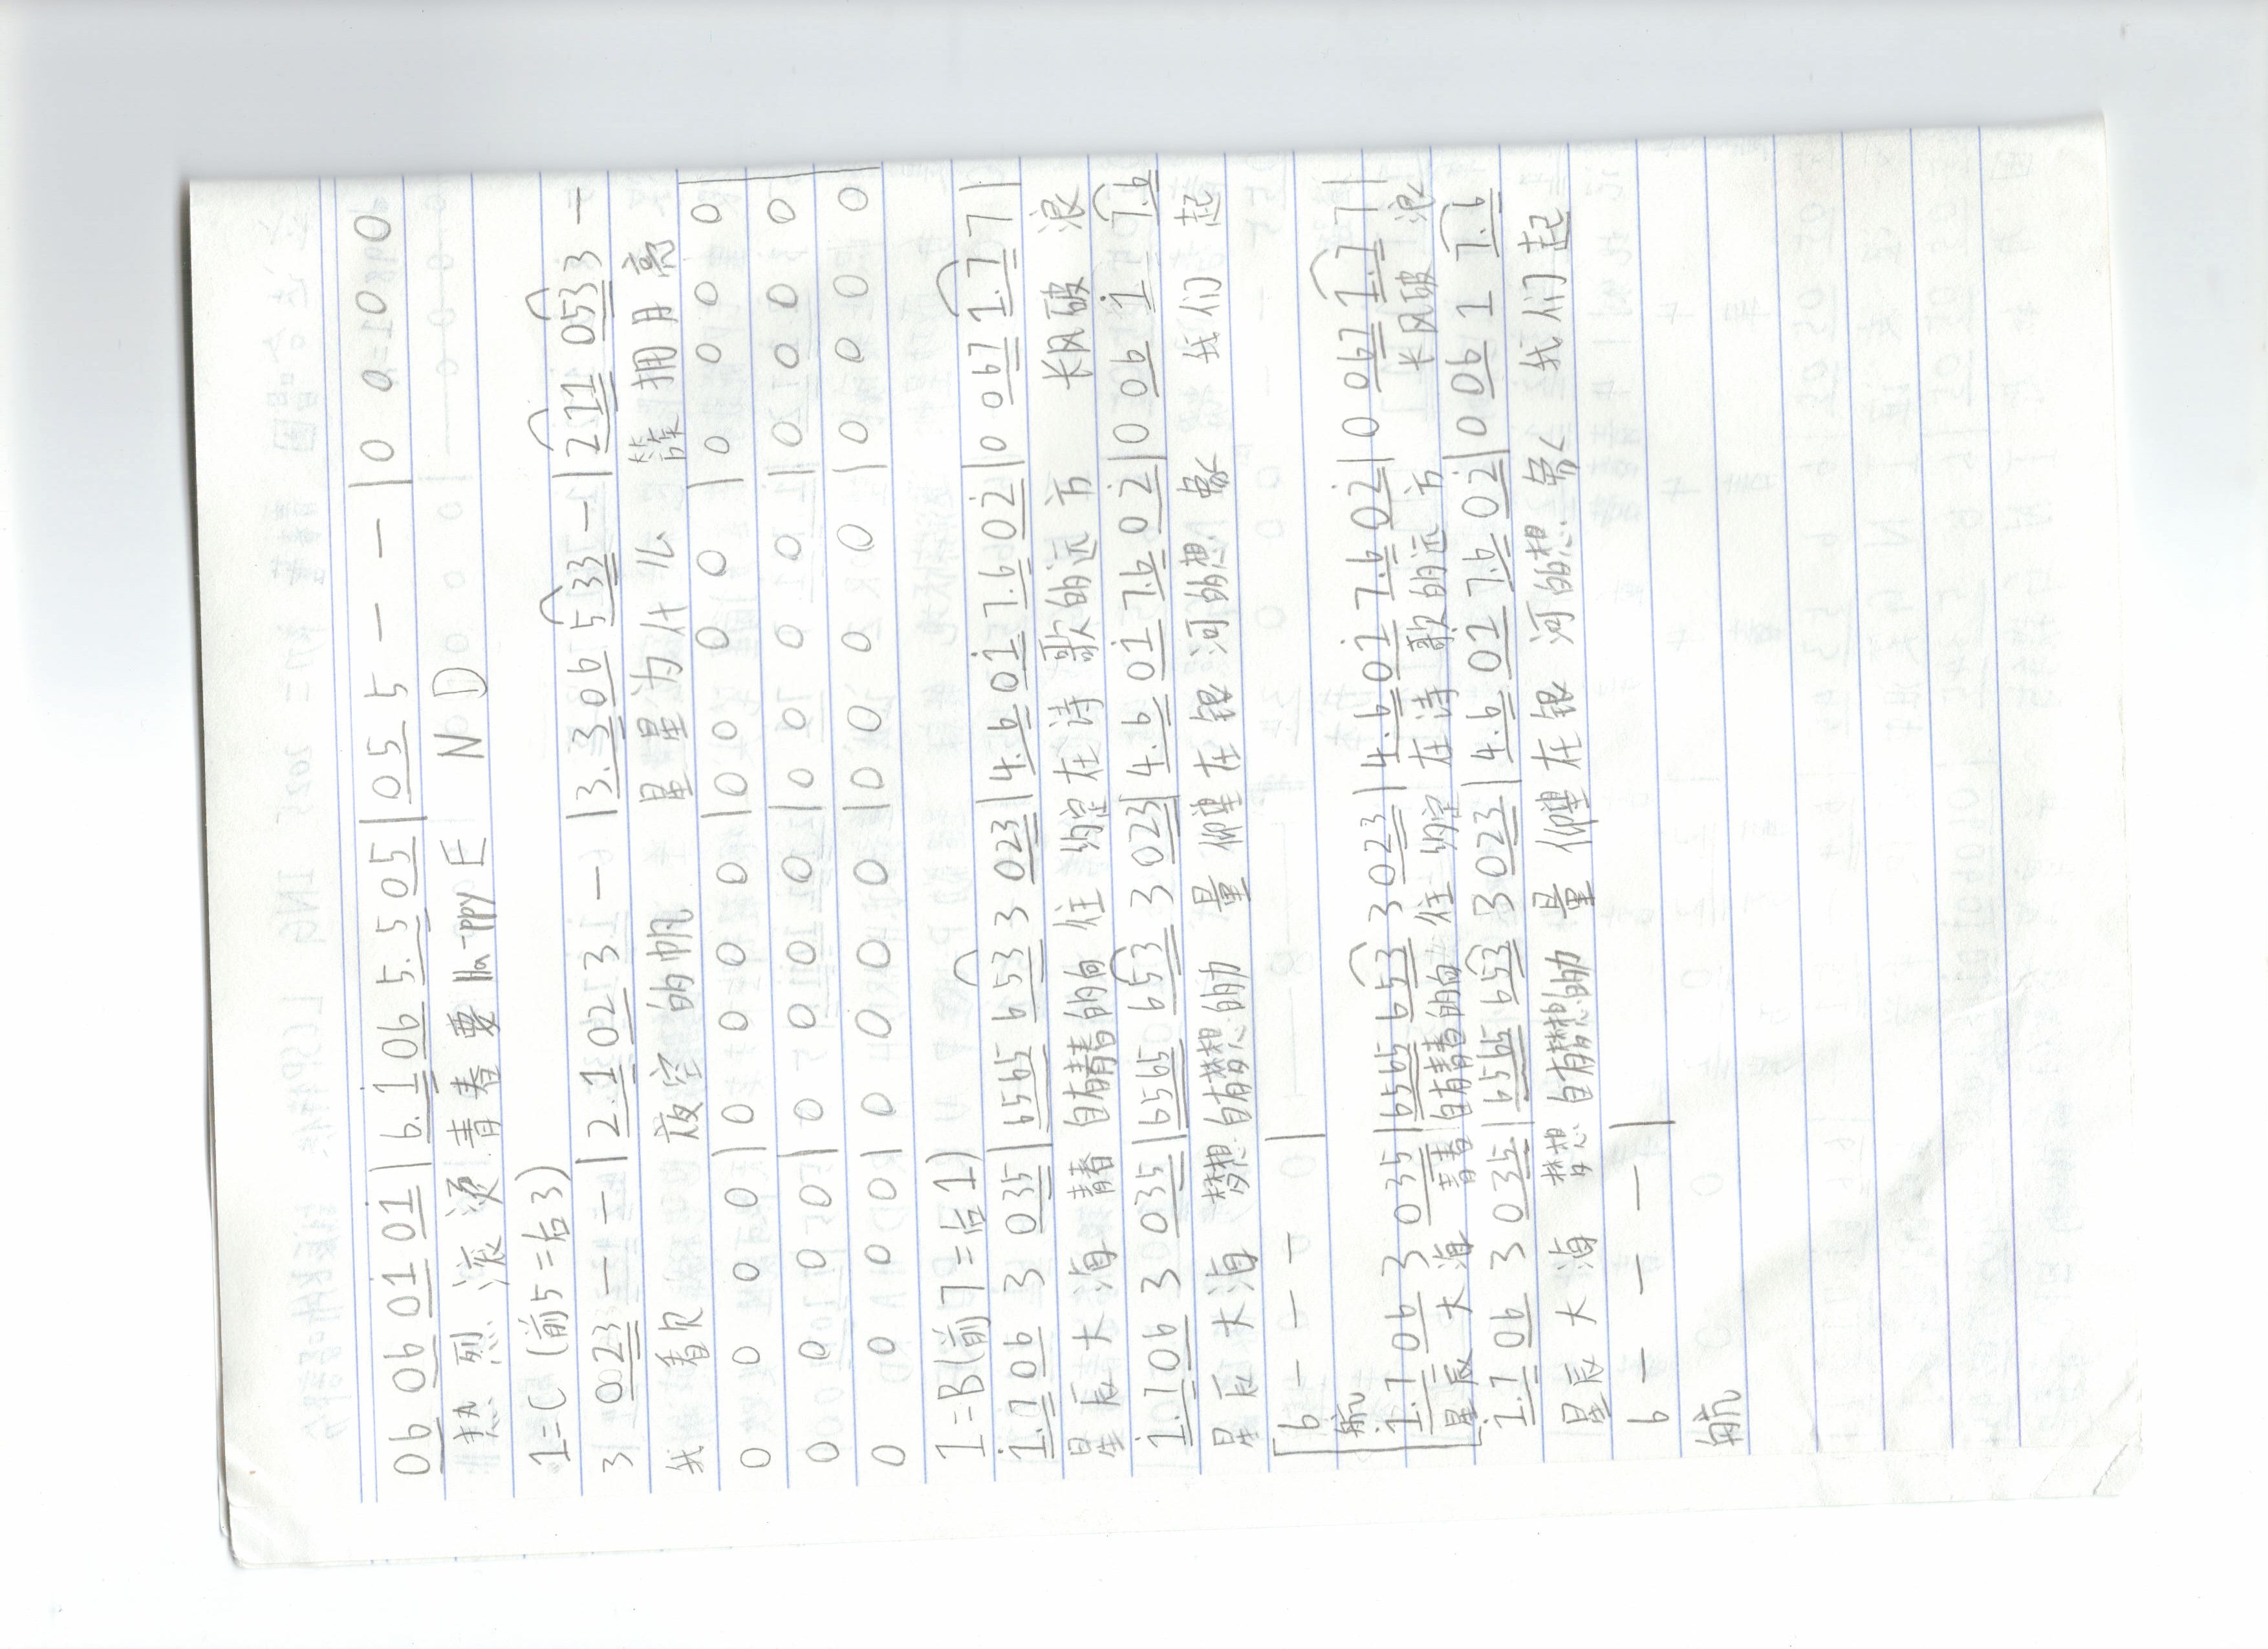 06 06 01 01 | 6.1 06 5.5 05 | 05 5 — — — | 0 0 0 0
热 烈 滚 烫 青 春 要 Ha-ppy E N D
1=C (前5=后3)
3 0023 — — | 2.1 02 3 — | 3.3 06 533 — | 211 053 3 —
我 看見 夜 空 的 帆 星 星 为 什 么 簇 拥 月 亮
0 0 0 0 | 0 0 0 0 | 0 0 0 0 | 0 0 0 0
0 0 0 0 | 0 0 0 0 | 0 0 0 0 | 0 0 0 0
0 0 0 0 | 0 0 0 0 | 0 0 0 0 | 0 0 0 0
1=B(前7=后1)
1.7 06 3 035 | 6565 653 3 023 | 4.6 01 7.6 02 | 0 067 1.7 7 |
星 辰 大 海 青春 自有青春的向 往  的空 在 诗 歌 的 远 方 长风破 浪
1.7 06 3 035 | 6565 653 3 023 | 4.6 01 7.6 02 | 0 06 1 7.6
星 辰 大 海 梦想 自有梦想的力 量 仰望 在 银 河 的 想 象 我 们 起
6 — — —
航
1.7 06 3 035 | 6565 653 3 023 | 4.6 01 7.6 02 | 0 067 1.7 7 |
星 辰 大 海 青春 自有青春的向 往 的空 在 诗 歌 的 远 方 长 风破 浪
1.7 06 3 035 | 6565 653 3 023 | 4.6 01 7.6 02 | 0 06 1 7.6
星 辰 大 海 梦想 自有梦想的力 量 仰望 在 银 河 的 想 象 我 们 起
6 — — — |
航